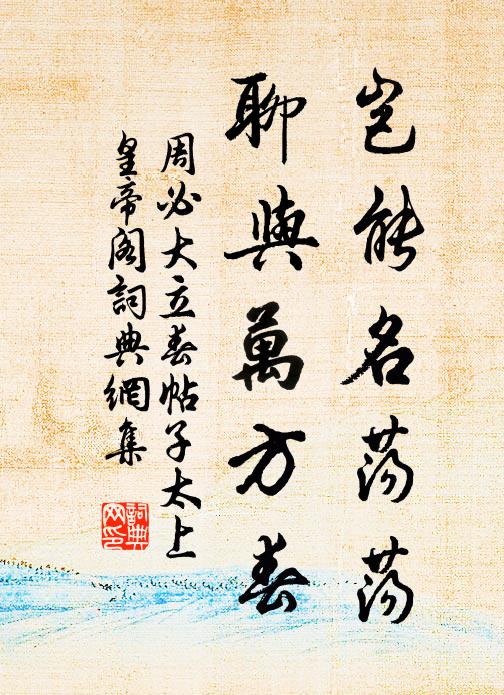 豈能名蕩蕩
聊與萬方春
周必大立春帖子太上
皇帝閣詞典網集
詞典
网印